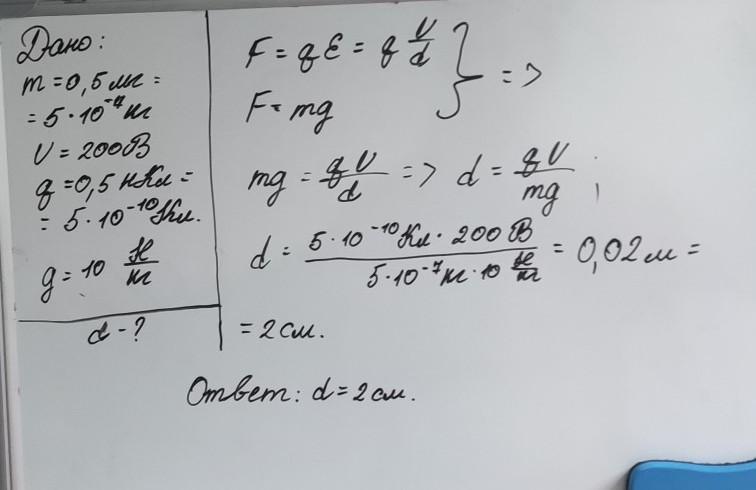 Дано:
m = 0,5 мг =
= 5 · 10⁻⁷ кг
U = 200 В
q = 0,5 нКл =
= 5 · 10⁻¹⁰ Кл.
g = 10 Н/кг
d - ?
F = qE = q U/d } =>
F = mg
mg = qU/d => d = qU/mg ;
d = 5 · 10⁻¹⁰ Кл · 200 В / 5 · 10⁻⁷ кг · 10 Н/кг = 0,02 м =
= 2 см.
Ответ: d = 2 см.